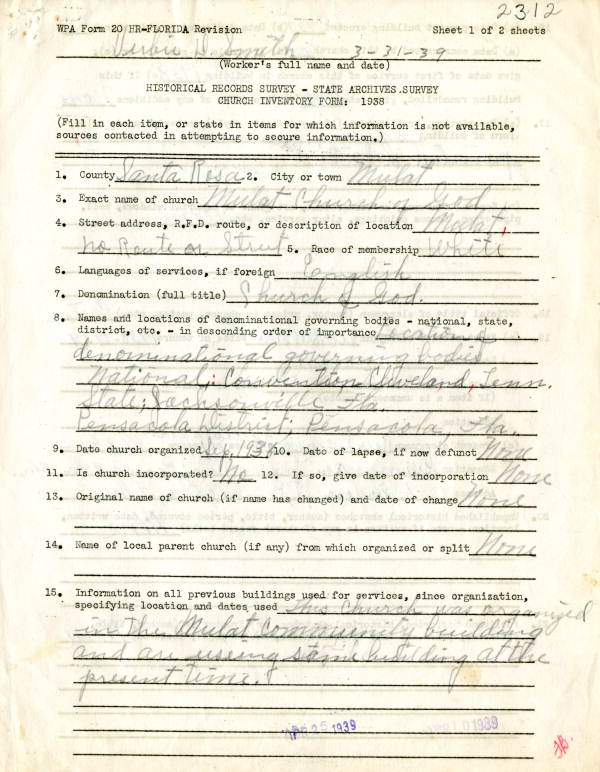 2312
WPA Form 20 HR-FLORIDA Revision Sheet 1 of 2 sheets
D. Smith 3-31-39
(Worker's full name and date)
HISTORICAL RECORDS SURVEY - STATE ARCHIVES SURVEY
CHURCH INVENTORY FORM: 1938
(Fill in each item, or state in items for which information is not available,
sources contacted in attempting to secure information.)
1. County Santa Rosa 2. City or town Mulat
3. Exact name of church Mulat Church of God
4. Street address, R.F.D. route, or description of location Mulat,
no Route or Street 5. Race of membership White
6. Languages of services, if foreign English
7. Denomination (full title) Church of God.
8. Names and locations of denominational governing bodies - national, state,
district, etc. - in descending order of importance Location of
denominational governing bodies
National; Convention Cleveland, Tenn.
State; Jacksonville Fla.
Pensacola District; Pensacola, Fla.
9. Date church organized Sep, 10. Date of lapse, if now defunct None
11. Is church incorporated? No 12. If so, give date of incorporation None
13. Original name of church (if name has changed) and date of change None
14. Name of local parent church (if any) from which organized or split None
15. Information on all previous buildings used for services, since organization,
specifying location and dates used This Church was organized
in The Mulat community building
and are useing same building at the
present time.
APR 25 1939 1939